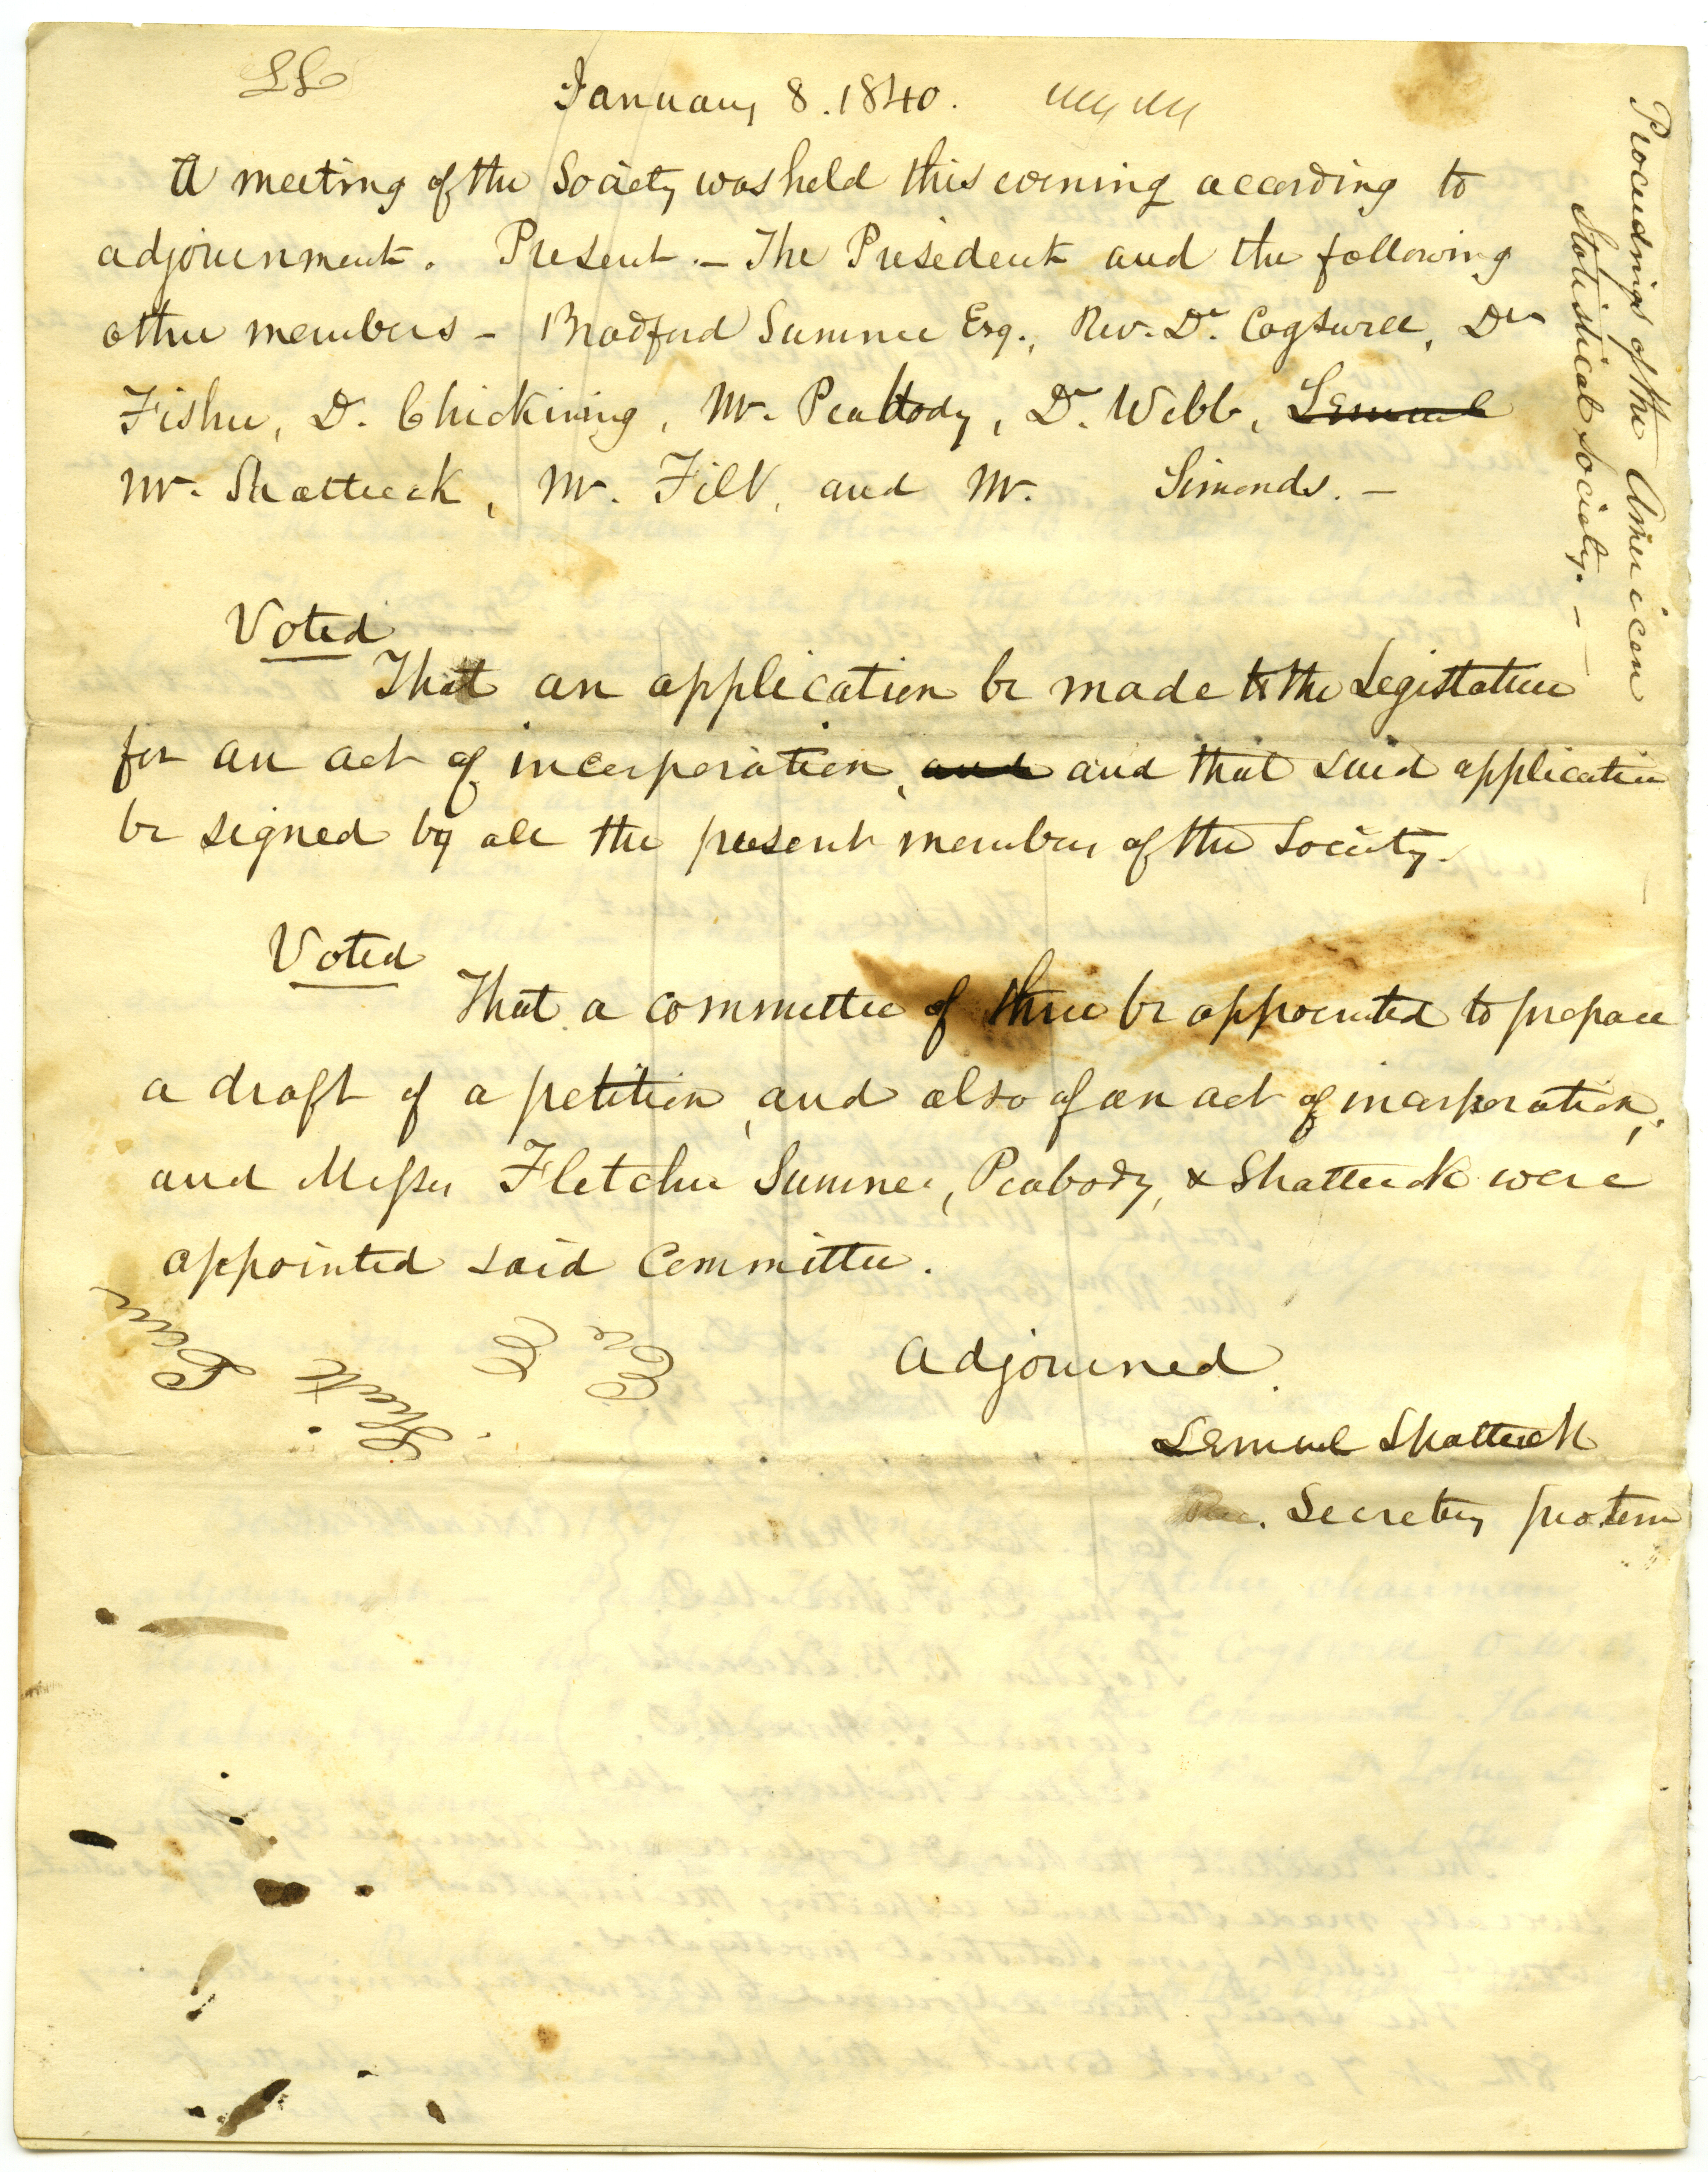 January 8. 1840.
A meeting of the Society was held this evening according to
adjournment. Present. – The President and the following
other members – Bradford Sumner Esq., Rev. Dr. Cogswell, Dr
Fisher, D. Chickering, Mr. Peabody, Dr. Webb, Lemuel
Mr. Shattuck, Mr. Felt, and Mr. Simonds. –
Voted
That an application be made to the Legislature
for an act of incorporation, and and that said application
be signed by all the present members of the Society.
Voted
That a committee of three be appointed to prepare
a draft of a petition, and also of an act of incorporation;
and Messrs Fletcher Sumner, Peabody, & Shattuck were
appointed said Committee.
Adjourned.
Lemuel Shattuck
Rec. Secretry protem
Proceedings of the American
Statistical Society. –